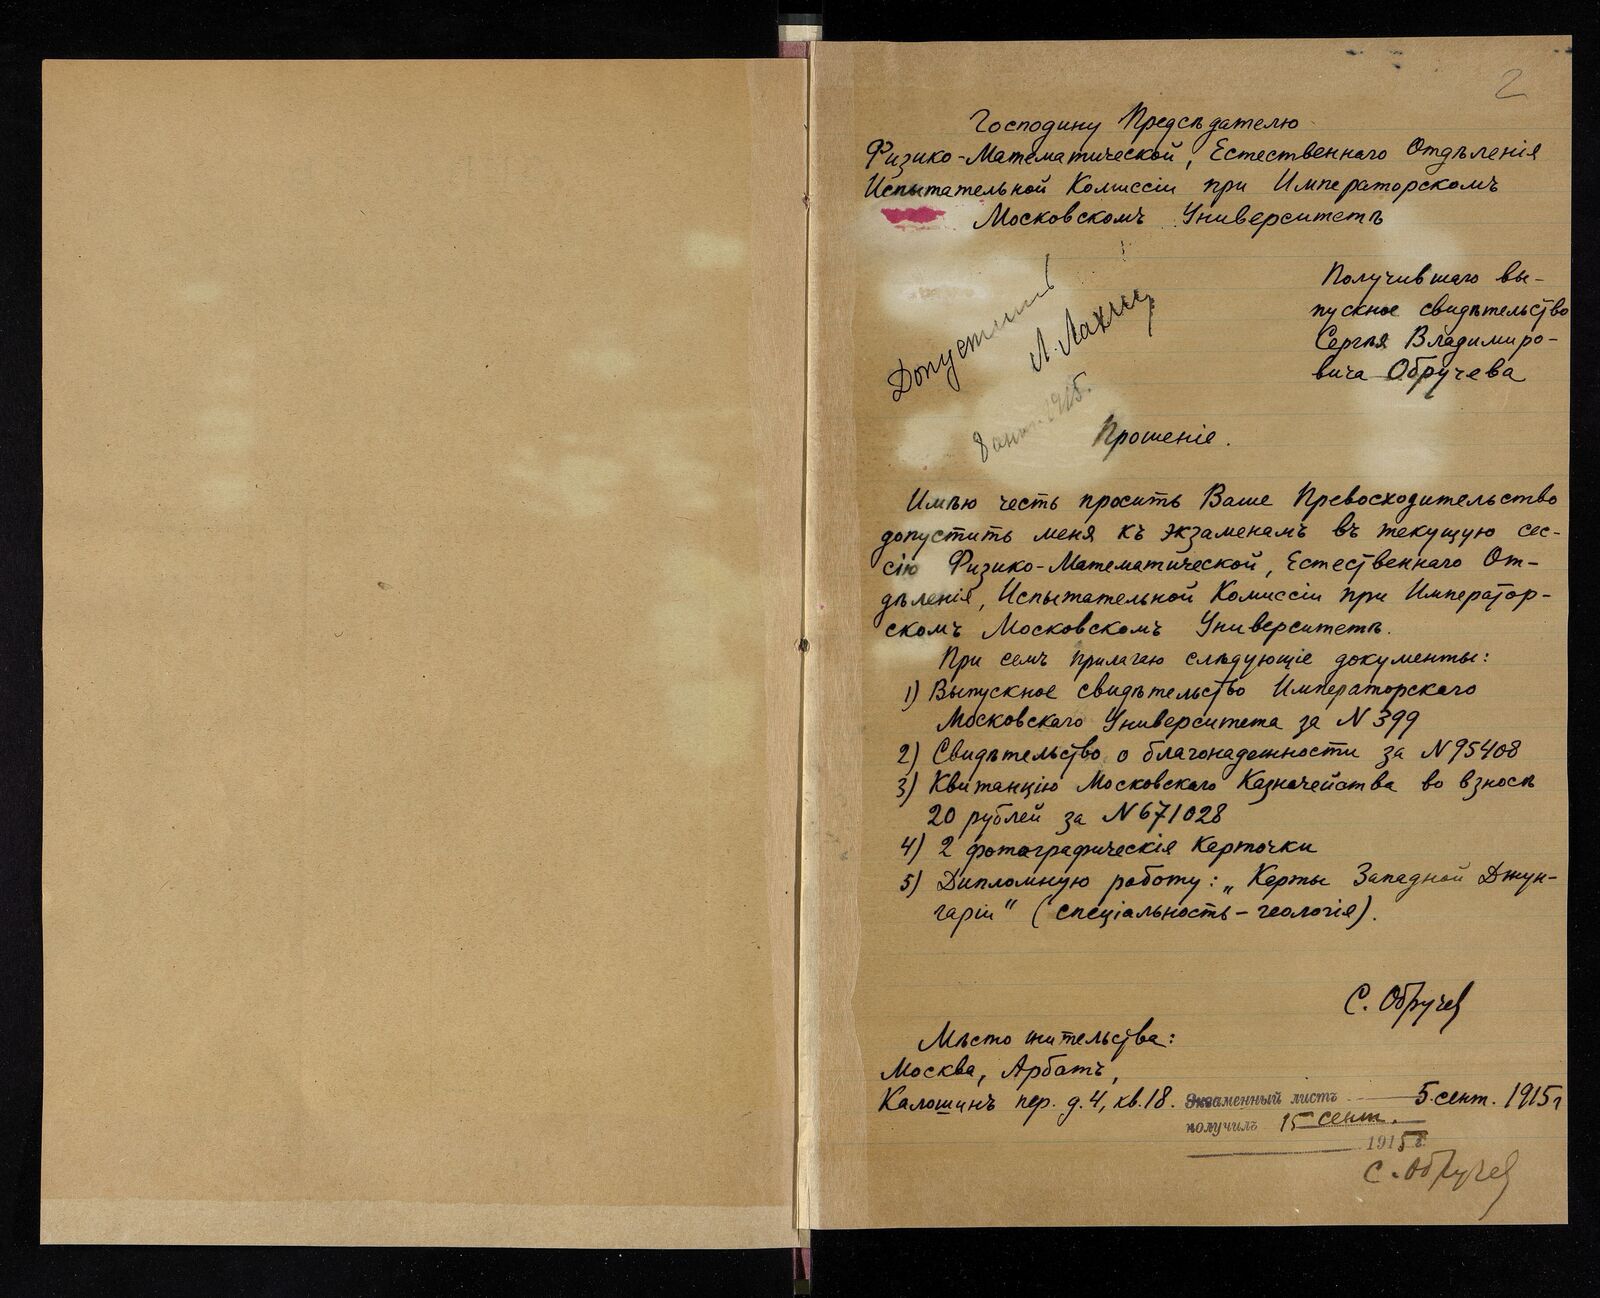 2
Господину Предсѣдателю
Физико-Математической, Естественнаго Отдѣленія
Испытательной Комиссіи при Императорскомъ
Московскомъ Университетѣ
Получившаго вы-
пускное свидѣтельство
Сергѣя Владимиро-
вича Обручева
Допустить
Л. Лахтин
1915.
Прошеніе.
Имѣю честь просить Ваше Превосходительство
допустить меня къ экзаменамъ въ текущую сес-
сію Физико-Математической, Естественнаго От-
дѣленія, Испытательной Комиссіи при Император-
скомъ Московскомъ Университетѣ.
При семъ прилагаю слѣдующіе документы:
1) Выпускное свидѣтельство Императорскаго
Московскаго Университета за N 399
2) Свидѣтельство о благонадежности за N 95408
3) Квитанцію Московскаго Казначейства во взносѣ
20 рублей за N 671028
4) 2 фотографическія карточки
5) Дипломную работу: „Карты Западной Джун-
гаріи" (спеціальность – геологія).
С. Обручев
Мѣсто жительства:
Москва, Арбатъ,
Калошинъ пер. д. 4, кв. 18.
5 сент. 1915 г
Экзаменный листъ
получилъ 15 сент.
1915 г.
С. Обручев